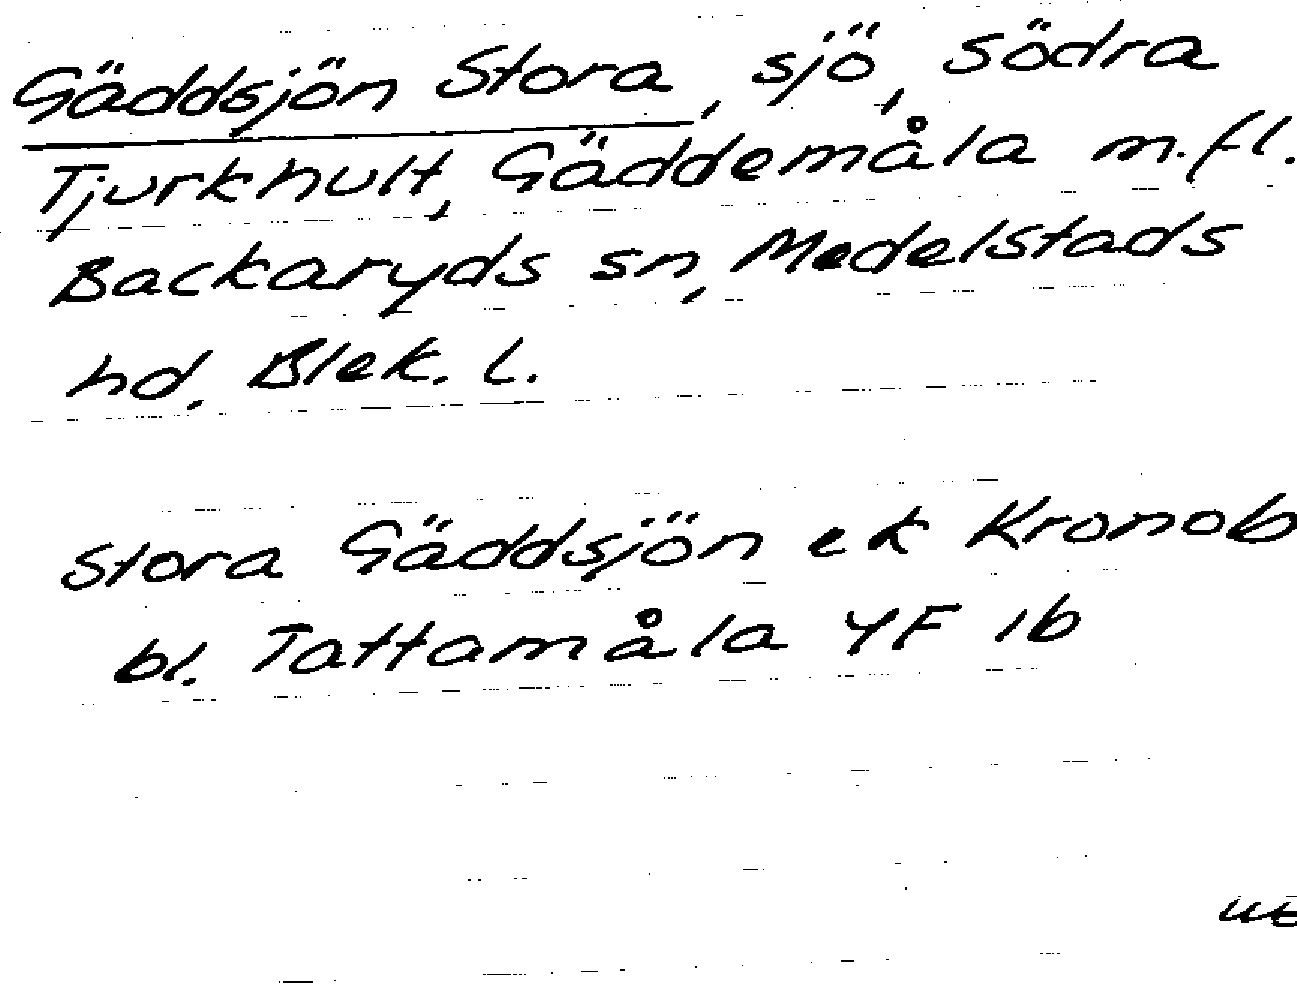 Gäddsjön Stora, sjö, södra
Tjurkhult, Gäddemåla m.fl.
Backaryds sn, Medelstads
hd. Blek. l.
Stora Gäddsjön ek Kronob
bl. Tattamåla YF 1b